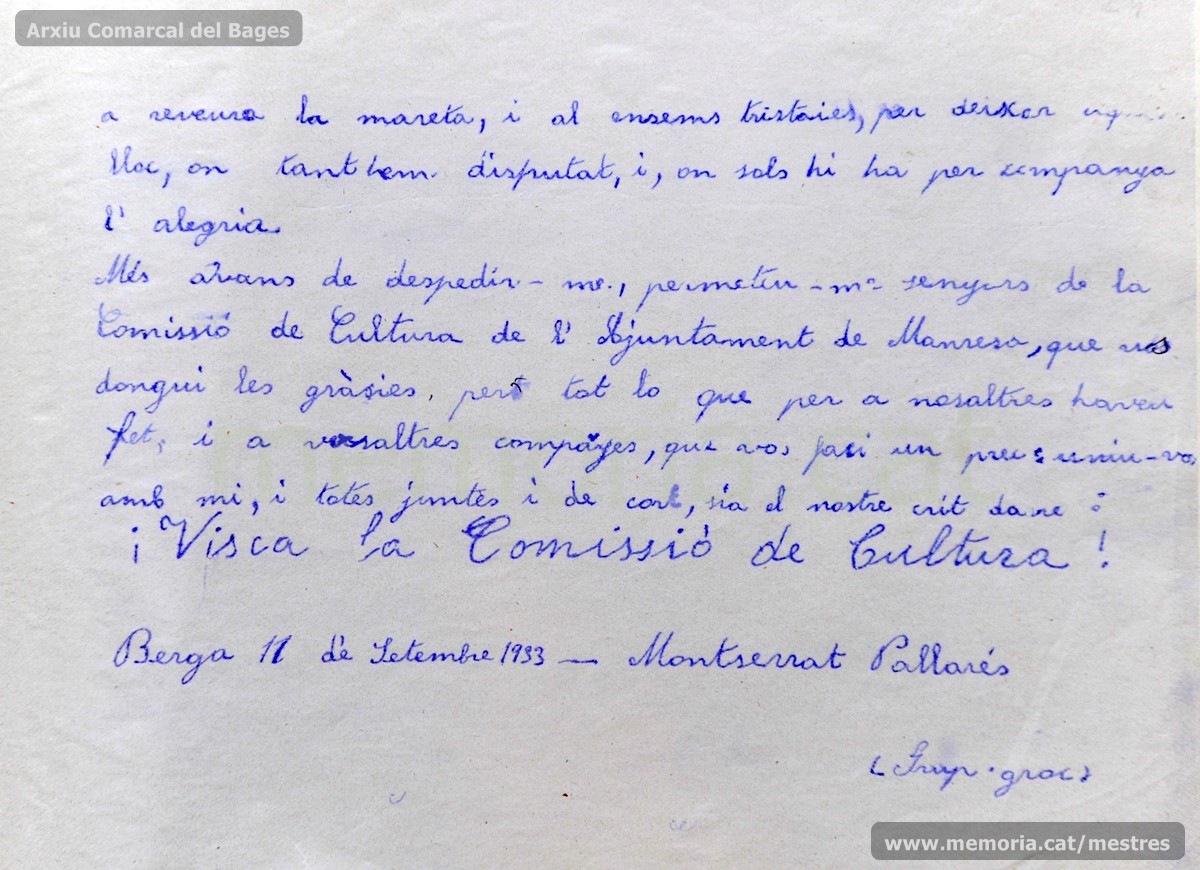 Arxiu Comarcal del Bages
a reveure la mareta, i al ensems tristoies, per deixar
lloc, on tant hem disfrutat, i, on sols hi ha per companya
l' alegria.
Més avans de despedir-me, permeteu-me senyors de la
Comissió de Cultura de l' Ajuntament de Manresa, que vos
dongui les gràsies, per tot lo que per a nosaltres haveu
fet, i a vosaltres companyes, que vos fasi un prec: uniu-vos
amb mi, i totes juntes i de cort, sia el nostre crit darre :
¡Visca la Comissió de Cultura!
Berga 11 de Setembre 1933 — Montserrat Pallarés
(Grup groc)
www.memoria.cat/mestres